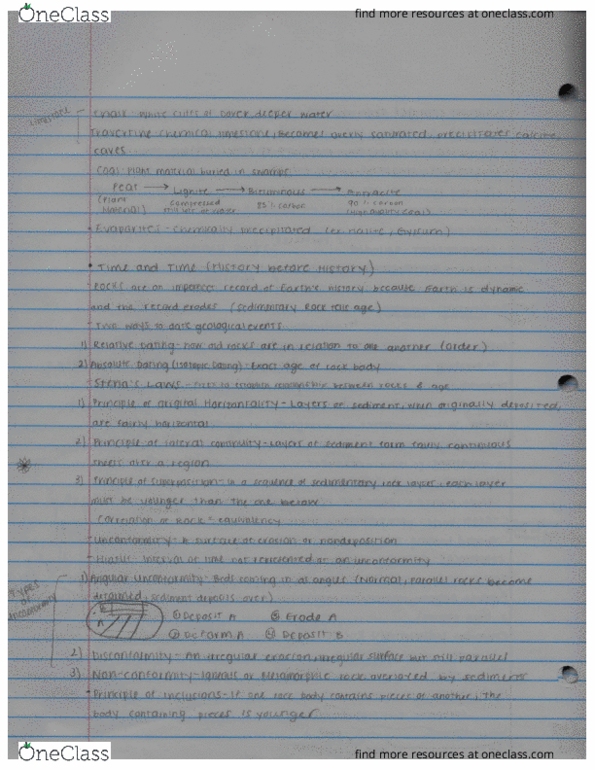 OneClass
find more resources at oneclass.com
limestone
Chalk White Cliffs of Dover deeper water
Travertine chemical limestone, becomes overly saturated, precipitates calcite,
caves
Coal plant material buried in swamps
Peat → Lignite → Bituminous → Anthracite
(Plant Material) Compressed 85% carbon 90% carbon (High quality coal)
• Evaporites - Chemically precipitated (ex. halite, Gypsum)
• Time and Time (History before History)
- Rocks are an imperfect record of Earth's history because Earth is dynamic
and the record erodes (Sedimentary Rock tells age)
- Two ways to date geological events
1) Relative Dating - how old rocks are in relation to one another (order)
2) Absolute Dating (Isotopic Dating) - Exact age of rock body
- Steno's Laws - tries to establish relationship between rocks & age
1) Principle of Original Horizontality - Layers of sediment, when originally deposited,
are fairly horizontal
2) Principle of lateral continuity - Layers of sediment form fairly continuous
sheets over a region
3) Principle of Superposition - in a sequence of sedimentary rock layers, each layer
must be younger than the one below
Correlation of Rock = equivalency
- Unconformity - A surface of erosion or nondeposition
- Hiatus - Interval of time not represented at an unconformity
Types of unconformity
1) Angular Unconformity - Beds coming in at angles (Normal, parallel rocks become
deformed, sediment deposits over)
B
A
① Deposit A ③ Erode A
② Deform A ④ Deposit B
2) Disconformity - An irregular erosion, irregular surface but still parallel
3) Non-conformity - Igneous or Metamorphic rock overlayed by sediments
• Principle of Inclusions - If one rock body contains pieces of another, the
body containing pieces is younger
OneClass
find more resources at oneclass.com